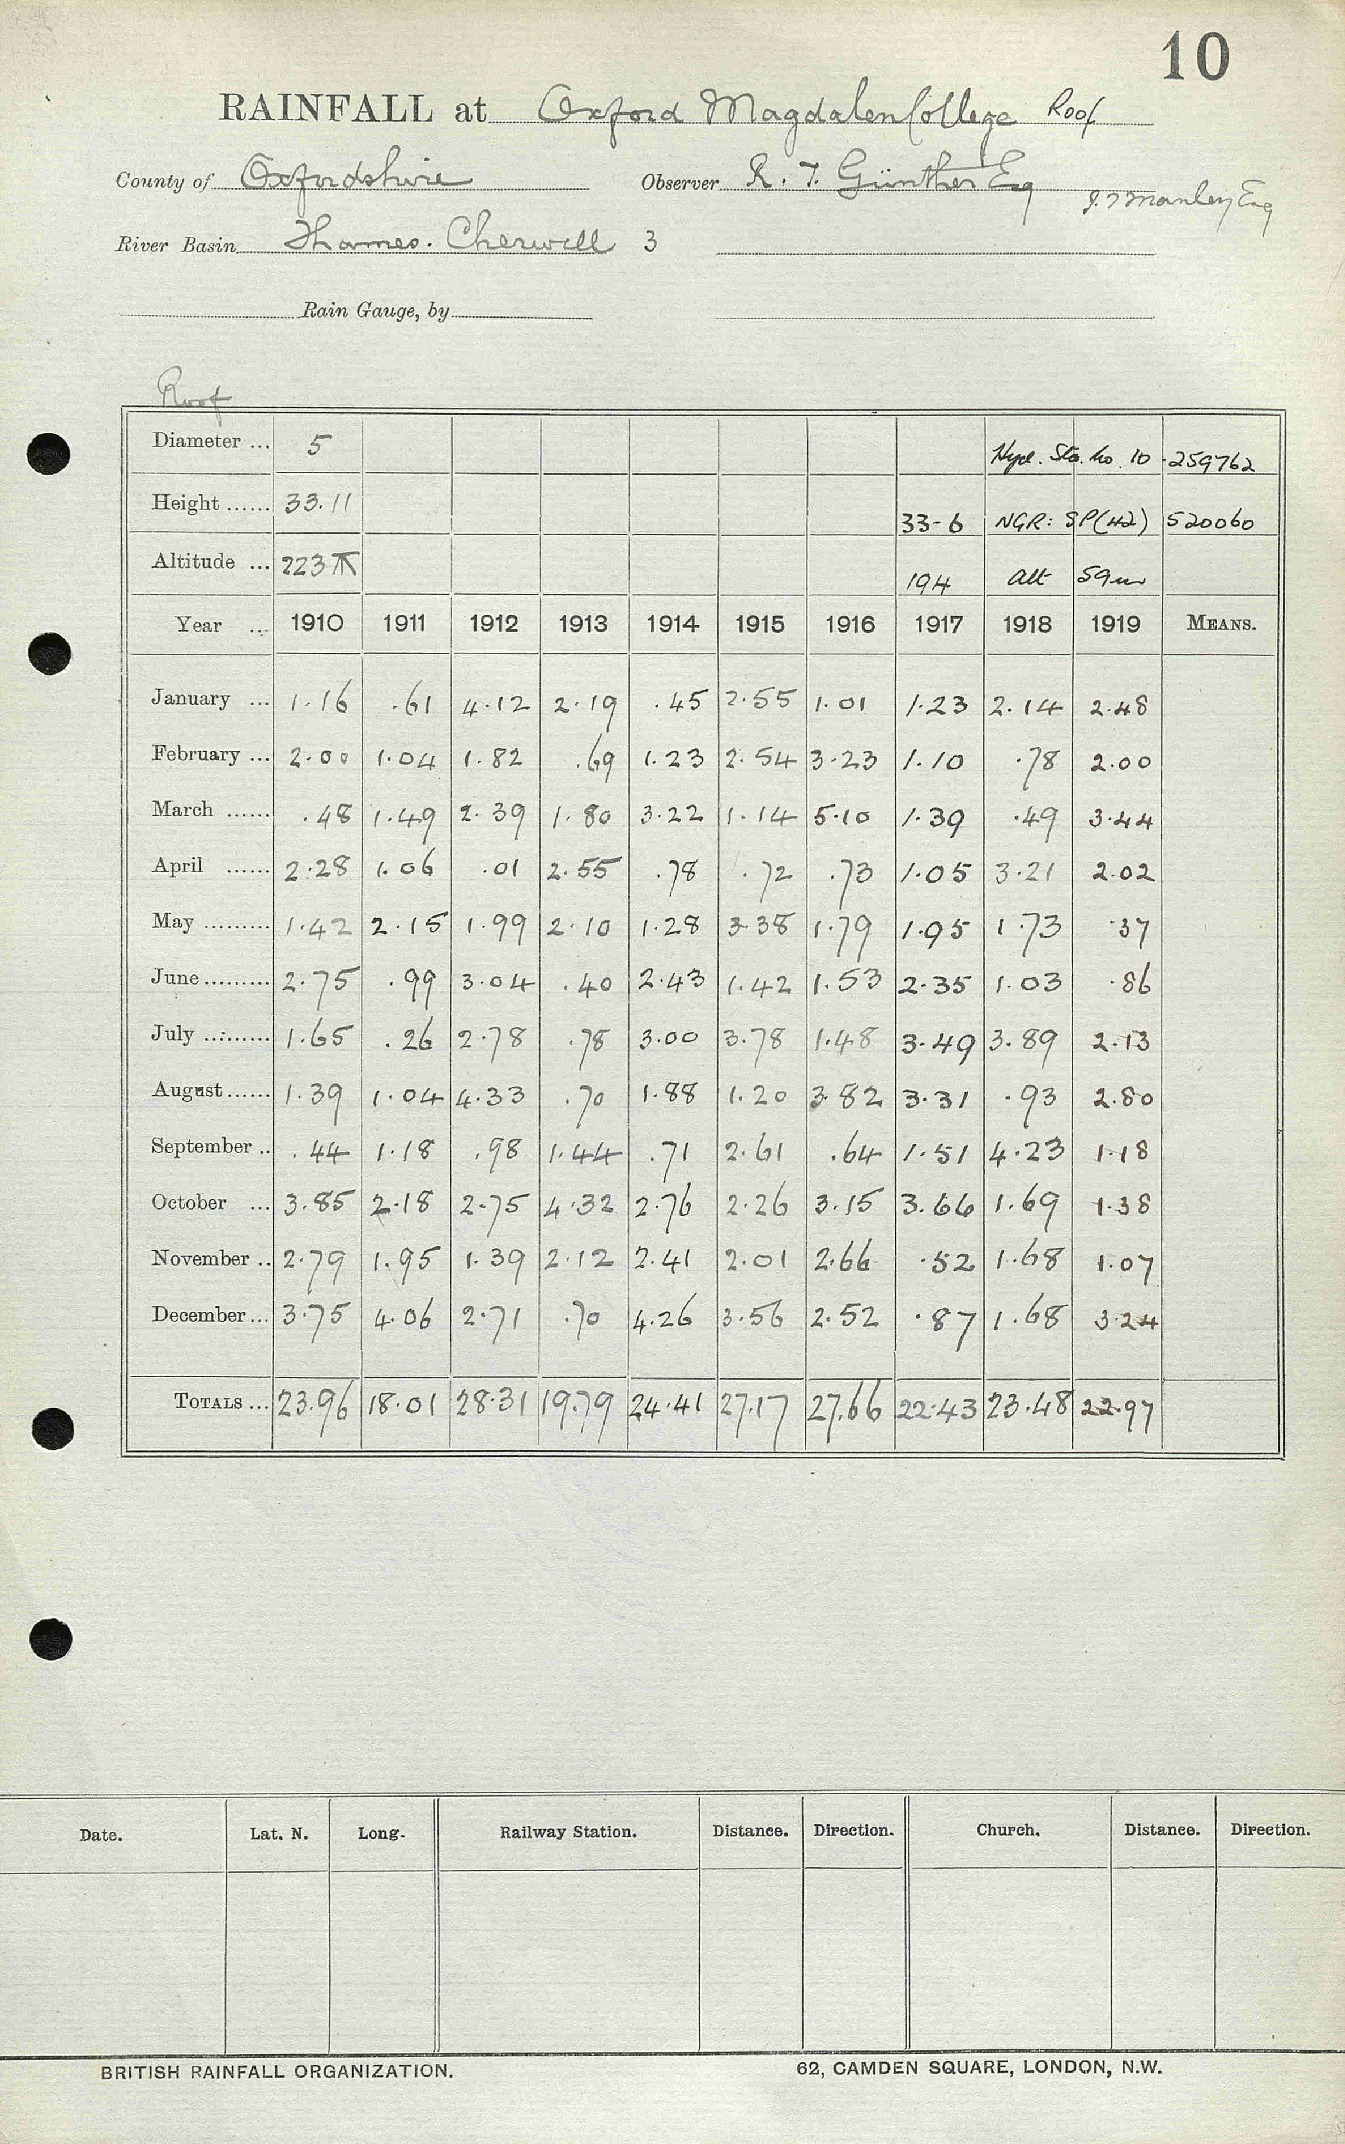 10
RAINFALL at Oxford Magdalen College Roof
County of Oxfordshire Observer R. T. Günther Esq J. J. Manley Esq
River Basin Thames. Cherwell 3
Rain Gauge, by
Roof
Diameter ... 5 Hyd. Sta. no. 10 .259762
Height ...... 33.11 33-6 NGR: SP(42) 520060
Altitude ... 223 194 alt 59m
Year ... 1910 1911 1912 1913 1914 1915 1916 1917 1918 1919 MEANS.
January ... 1.16 .61 4.12 2.19 .45 2.55 1.01 1.23 2.14 2.48
February ... 2.00 1.04 1.82 .69 1.23 2.54 3.23 1.10 .78 2.00
March ...... .48 1.49 2.39 1.80 3.22 1.14 5.10 1.39 .49 3.44
April ...... 2.28 1.06 .01 2.55 .78 .72 .73 1.05 3.21 2.02
May ......... 1.42 2.15 1.99 2.10 1.28 3.38 1.79 1.95 1.73 .37
June ......... 2.75 .99 3.04 .40 2.43 1.42 1.53 2.35 1.03 .86
July ......... 1.65 .26 2.78 .78 3.00 3.78 1.48 3.49 3.89 2.13
August ...... 1.39 1.04 4.33 .70 1.88 1.20 3.82 3.31 .93 2.80
September .. .44 1.18 .98 1.44 .71 2.61 .64 1.51 4.23 1.18
October ... 3.85 2.18 2.75 4.32 2.76 2.26 3.15 3.66 1.69 1.38
November .. 2.79 1.95 1.39 2.12 2.41 2.01 2.66 .52 1.68 1.07
December ... 3.75 4.06 2.71 .70 4.26 3.56 2.52 .87 1.68 3.24
TOTALS ... 23.96 18.01 28.31 19.79 24.41 27.17 27.66 22.43 23.48 22.97
Date. Lat. N. Long. Railway Station. Distance. Direction. Church. Distance. Direction.
BRITISH RAINFALL ORGANIZATION. 62, CAMDEN SQUARE, LONDON, N.W.